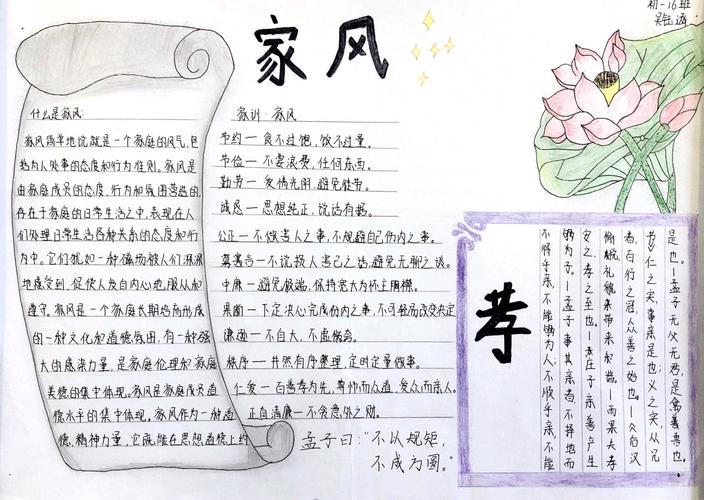 家风
初一16班
什么是家风:
家风简单地说就是一个家庭的风气,包
括为人处事的态度和行为准则。家风是
由家庭成员的态度、行为和氛围营造的,
存在于家庭的日常生活之中,表现在人
们处理日常生活各种关系的态度和行
为中。它们就如一种磁场被人们深深
地感受到,促使人发自内心地服从和
遵守。家风是一个家庭长期培育形成
的一种文化和道德氛围,有一种强
大的感染力量,是家庭伦理和家庭
美德的集中体现。家风是家庭成员道
德水平的集中体现。家风作为一种道
德、精神力量,它既能在思想道德上约
家训·家风
节约一食不过饱,饮不过量。
节俭一不要浪费,任何东西。
勤劳一爱惜光阴,避免徒劳。
诚恳一思想纯正,说话有据。
公正一不做害人之事,不规避自己份内之事。
寡言一不说损人害己之话,避免无聊之谈。
中庸一避免极端,保持宽大为怀之胸襟。
果断一下定决心完成份内之事,不可轻而改变决定
谦逊一不自大,不虚
秩序一井然有序整理,定时定量做事。
仁爱一百善孝为先,尊师而众道,爱众而亲人。
正直清廉一不贪意外之财。
孟子曰:“不以规矩,
不成方圆。”
孝
是也。一孟子 无父无君,是禽兽也。
书》仁之实,事亲是也;义之实,从兄
者,百行之冠,众善之始也。一《后汉
惭愧,礼貌带来和谐。一雨果 夫孝
安之,孝之至也。一庄子 亲善产生
够为子。一孟子 事其亲者,不择地而
不得乎亲,不能够为人;不顺乎亲,不能